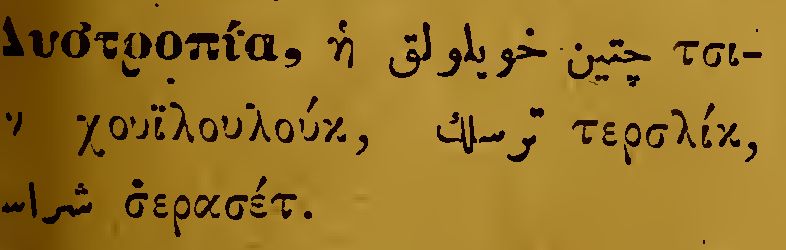 Δυστροπία, ἡ چتین خویلولق τσι-
ν χουϊλουλούκ, ترسلك τερσλίκ,
شراس σ̇ερασέτ.